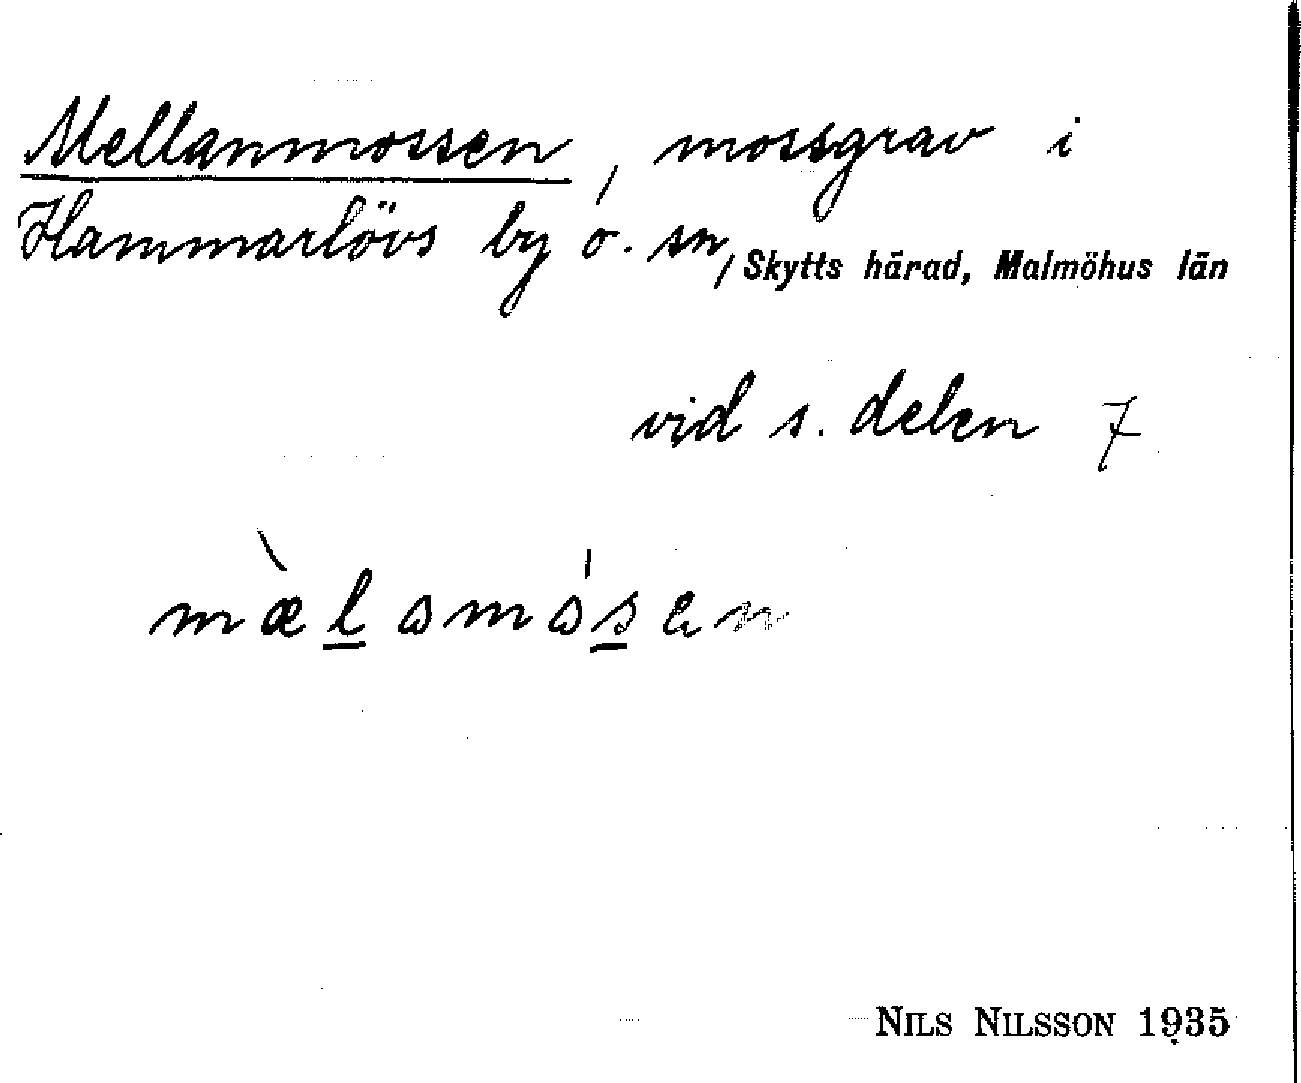 Mellanmossen, mossgrav i
Hammarlövs by o. sn, Skytts härad, Malmöhus län
vid s. delen 7
NILS NILSSON 1935